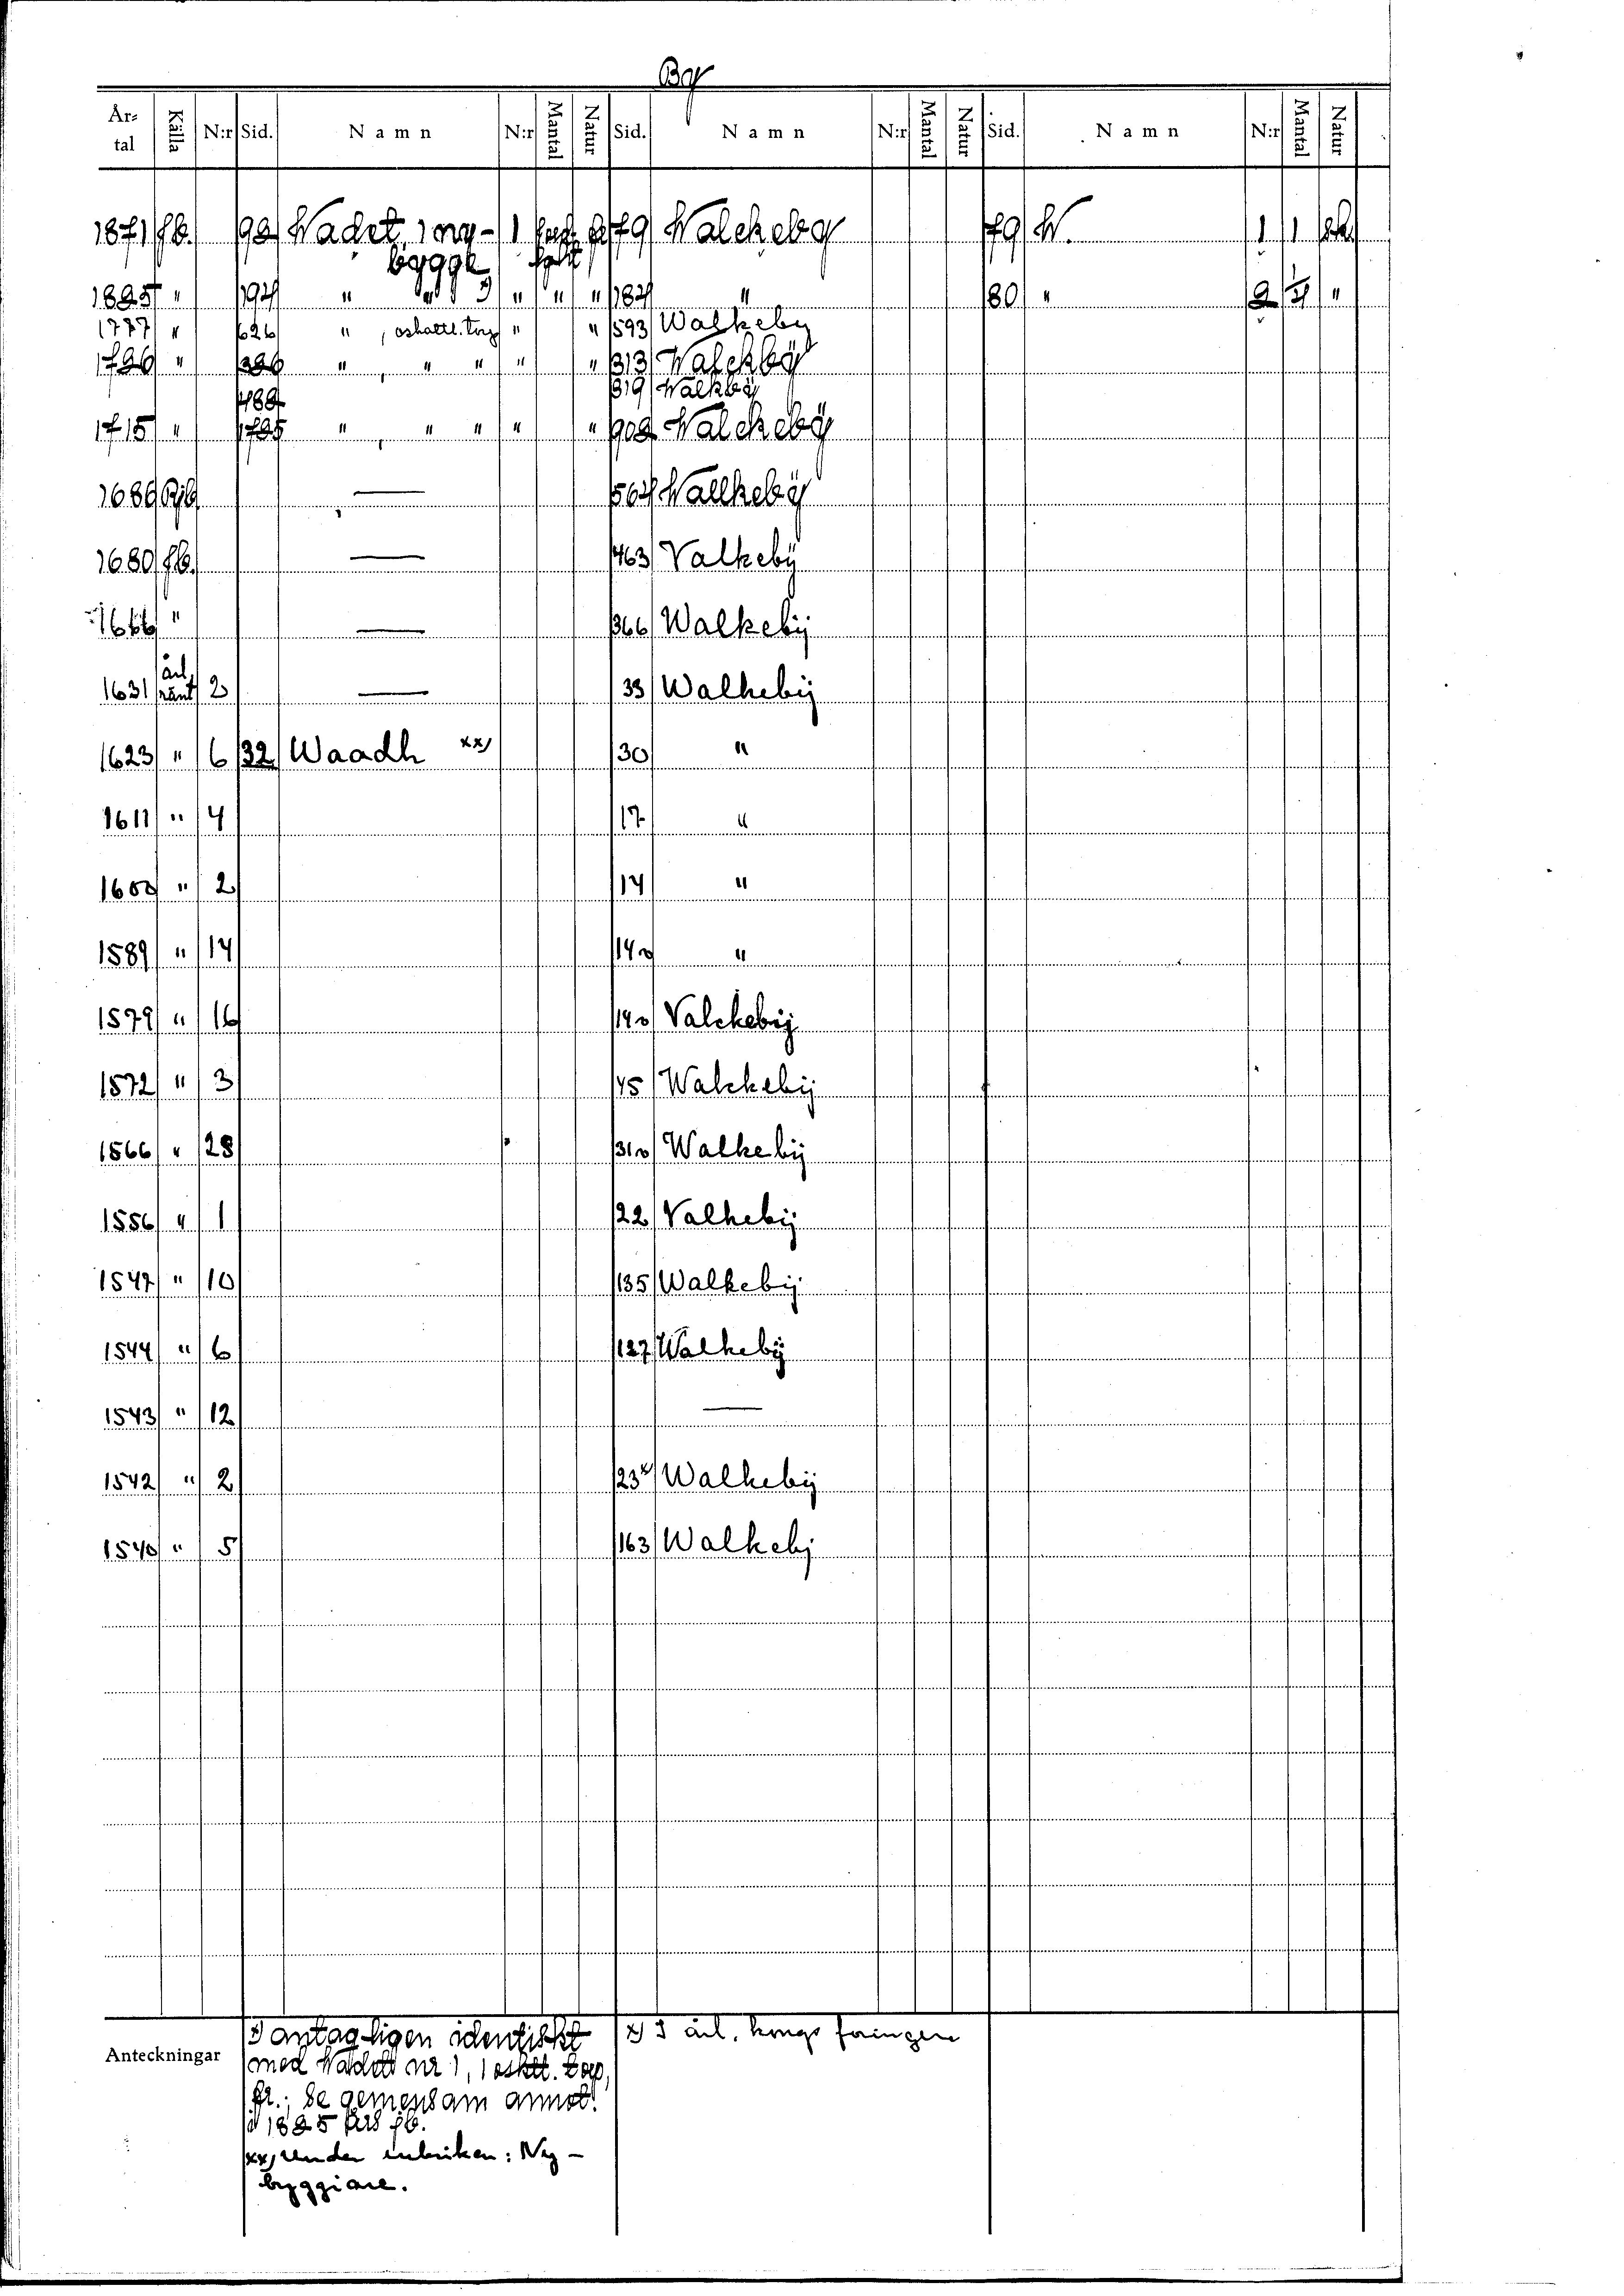 By
År-tal Källa N:r Sid. Namn N:r Mantal Natur Sid. Namn N:r Mantal Natur Sid. Namn N:r Mantal Natur
1871 jb. 92 Wadet, 1 ny- 1 79 Walckeby 79 W. 1 1 sk
bygge
1825 " 194 " " " " " 184 " 80 " 2 1/4 "
1777 " 626 " , oskattl. torp " " 593 Walkeby
1726 " 326 " , " " " " 313 Walckbÿ
488 319 Walkbÿ
1715 " 1725 " , " " " " 902 Walckebÿ
1686 Rjb — 564 Wallkebÿ
1680 jb. — 463 Valkebÿ
1666 " — 366 Walkebÿ
1631 ärl. ränt 2 — 33 Walkebÿ
1623 " 6 32 Waadh xx) 30 "
1611 " 4 17 "
1600 " 2 14 "
1589 " 14 14v "
1579 " 16 14v Valckebij
1572 " 3 45 Walckebij
1566 " 28 31v Walkebij
1556 " 1 22 Valkebij
1547 " 10 135 Walkebij
1544 " 6 127 Walkebÿ
1543 " 12 —
1542 " 2 23x Walkebij
1540 " 5 163 Walkebj
Anteckningar
antagligen identiskt
med Wadett nr 1, 1 oskatt. torp,
fr.; se gemensam annot.
i 1825 års jb.
xx) under rubriken: Ny-
byggiare.
x) I ärl. kongs faringen